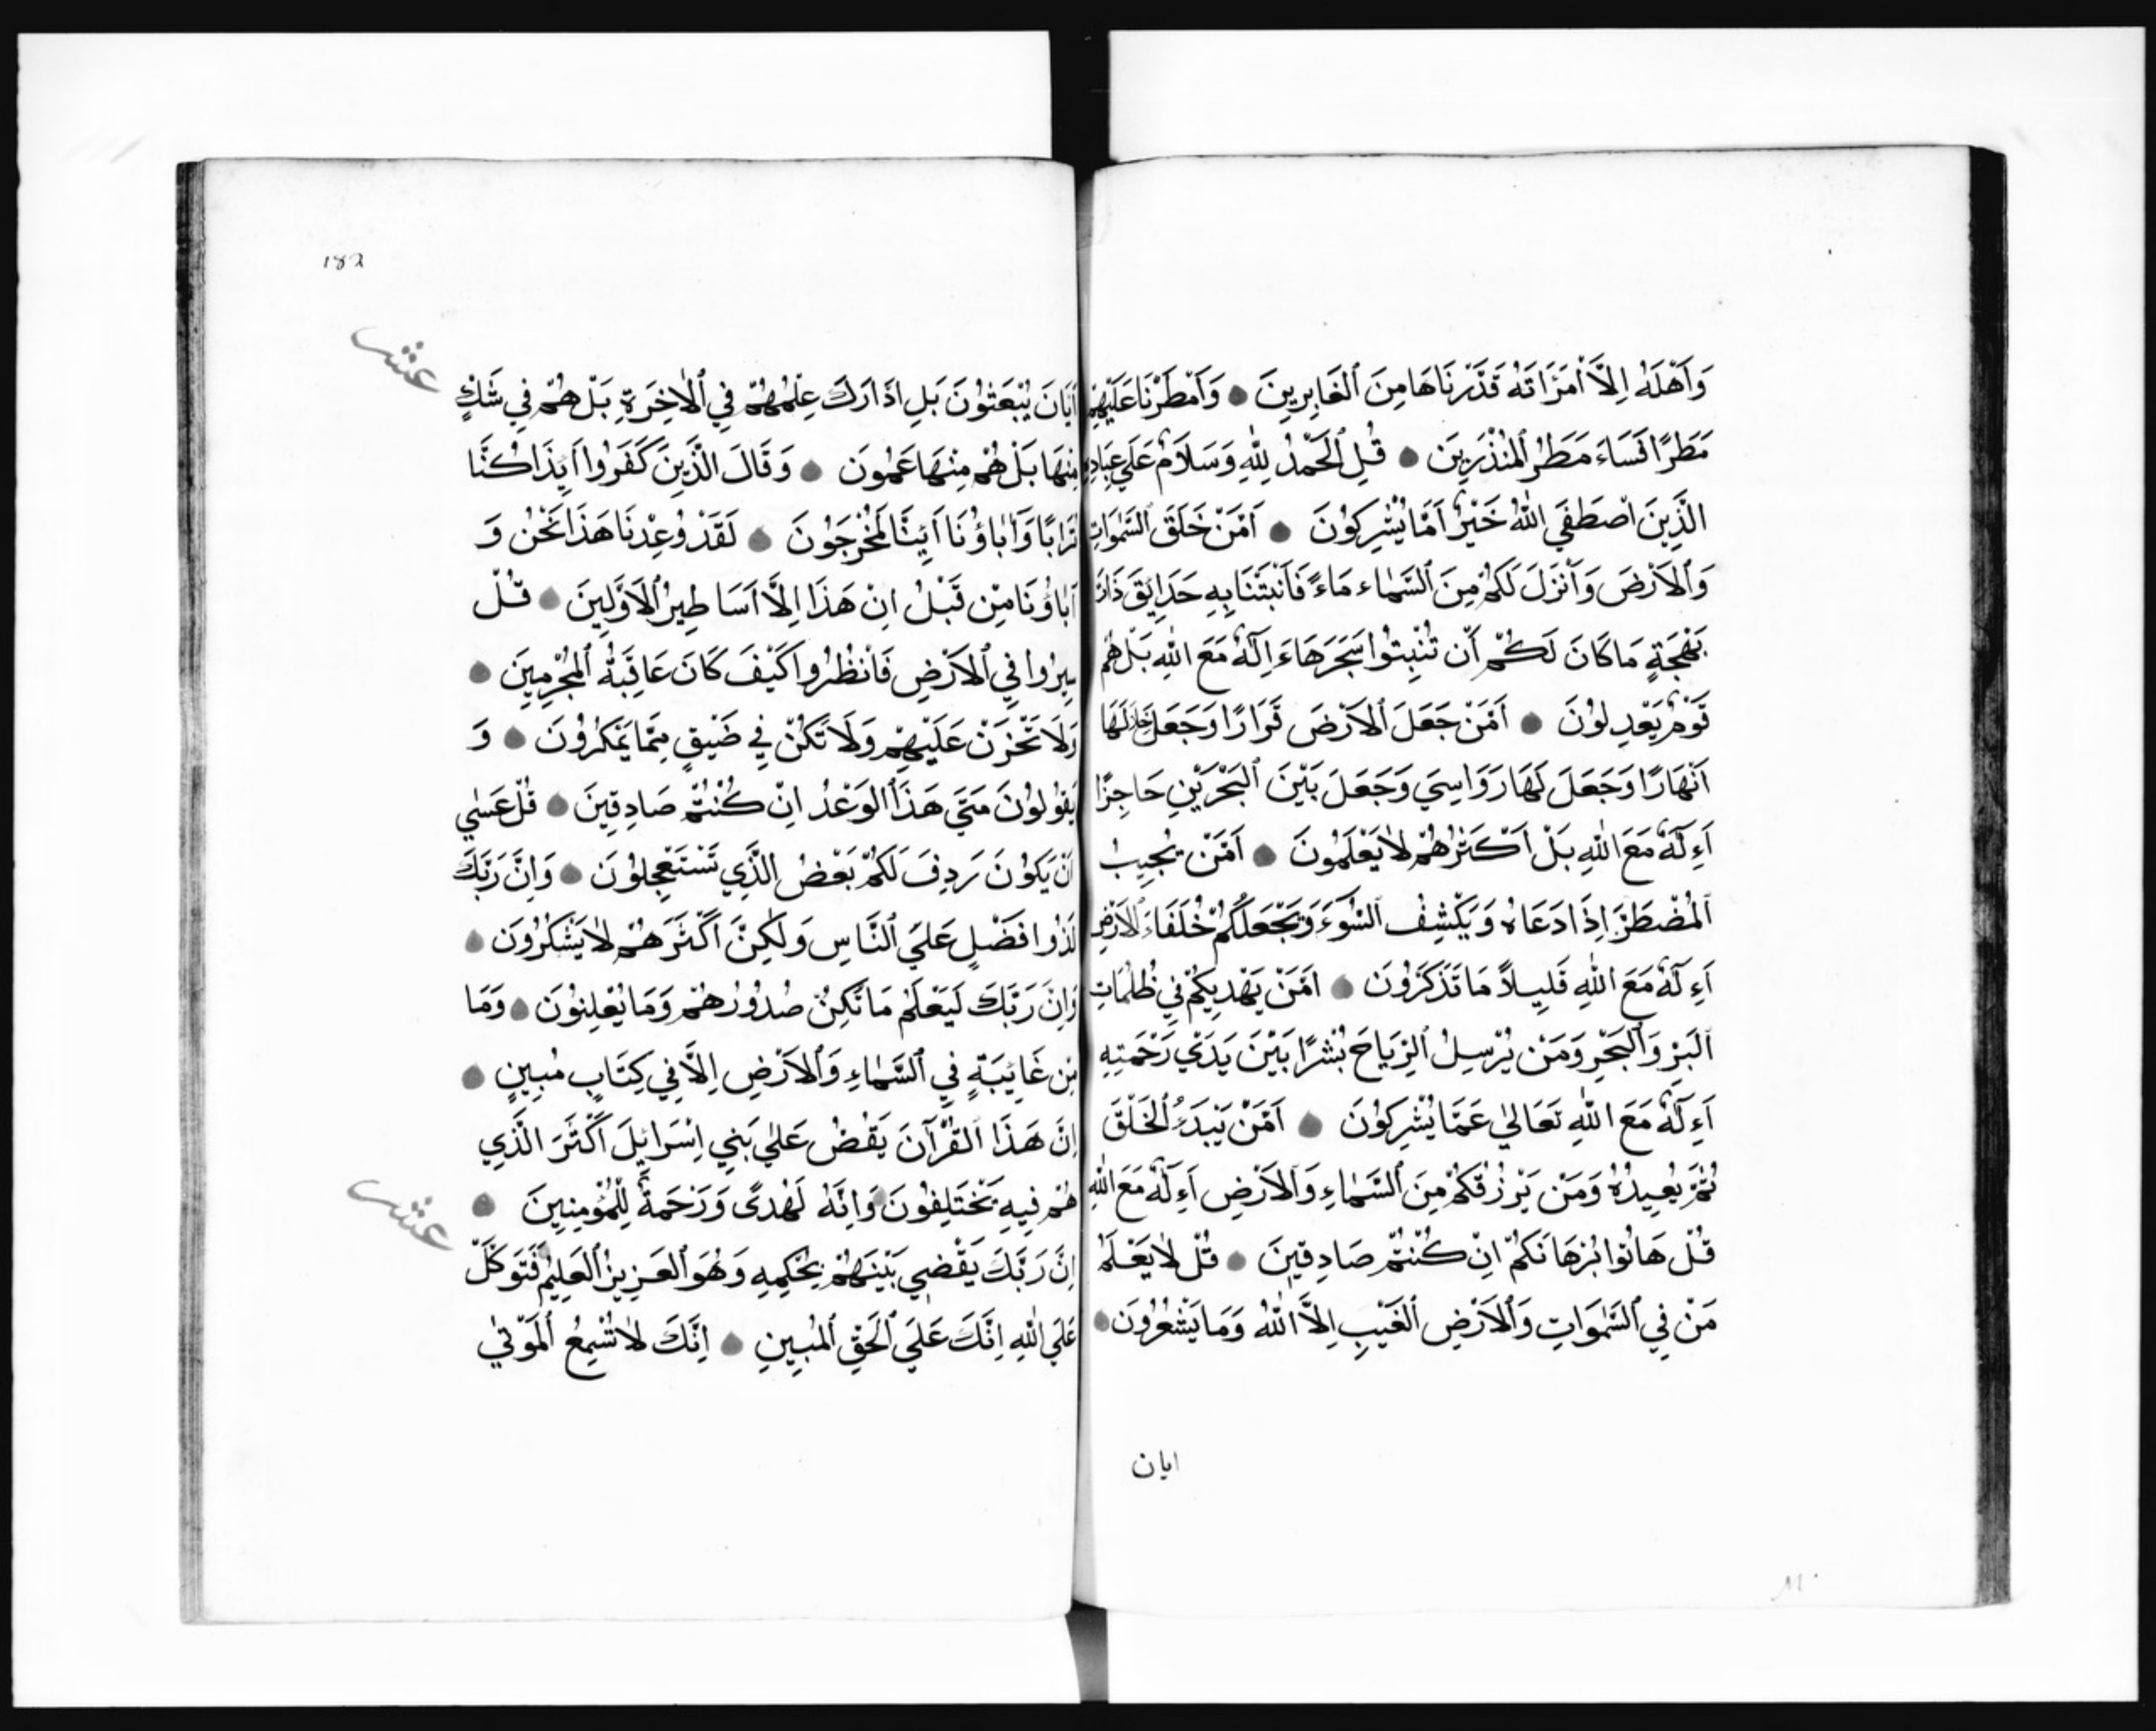 وَاَهْلَهُ اِلاَّ اْمَرَاَتَهُ قَدَّرْنَاهَا مِنَ ٱلْغَابِرِينَ وَاَمْطَرْنَا عَلَيْهِمْ
مَطَرًا فَسَاءَ مَطَرُ ٱلْمُنْذَرِينَ قُلِ ٱلْحَمْدُ لِلّٰهِ وَسَلَامٌ عَلَي عِبَادِهِ
الَّذِينَ اصْطَفَي اللّٰهُ خَيْرٌ اَمَّا يُشْرِكُونَ اَمَّنْ خَلَقَ السَّمٰوَاتِ
وَٱلاَرْضَ وَاَنْزَلَ لَكُمْ مِنَ ٱلسَّمَاء مَاءً فَاَنْبَتْنَا بِهِ حَدَايِقَ ذَاتَ
بَهْجَةٍ مَا كَانَ لَكُمْ أَنْ تُنْبِتُوا شَجَرَهَا ءَاِلَهٌ مَعَ اللّٰهِ بَلْ هُمْ
قَوْمٌ يَعْدِلُونَ اَمَّنْ جَعَلَ ٱلاَرْضَ قَرَارًا وَجَعَلَ خِلَالَهَا
اَنْهَارًا وَجَعَلَ لَهَا رَوَاسِيَ وَجَعَلَ بَيْنَ ٱلْبَحْرَيْنِ حَاجِزًا
اَءِلَهٌ مَعَ اللّٰهِ بَلْ اَكْثَرُهُمْ لاٰ يَعْلَمُونَ اَمَّنْ يُجِيبُ
ٱلْمُضْطَرَّ اِذَا دَعَاهُ وَيَكْشِفُ ٱلسُّوَءَ وَيَجْعَلُكُمْ خُلَفَاءَ ٱلاَرْضِ
اَءِلَهٌ مَعَ اللّٰهِ قَلِيلاً مَا تَذَكَّرُونَ اَمَّنْ يَهْدِيكُمْ فِي ظُلُمَاتِ
ٱلْبَرِّ وَٱلْبَحْرِ وَمَنْ يُرْسِلُ ٱلرِّيَاحَ بُشْرًا بَيْنَ يَدَيْ رَحْمَتِهِ
اَءِلَهٌ مَعَ اللّٰهِ تَعَالَيٰ عَمَّا يُشْرِكُونَ اَمَّنْ يَبْدَءُ ٱلْخَلْقَ
ثُمَّ يُعِيدُهُ وَمَنْ يَرْزُقُكُمْ مِنَ ٱلسَّمَاءِ وَٱلاَرْضِ اَءِلَهٌ مَعَ اللّٰهِ
قُلْ هَاتُوا بُرْهَانَكُمْ اِنْ كُنْتُمْ صَادِقِينَ قُلْ لاٰ يَعْلَمُ
مَنْ فِي ٱلسَّمٰوَاتِ وَٱلاَرْضِ ٱلْغَيْبِ اِلاَّ اللّٰهُ وَمَا يَشْعُرُونَ
ايان
182
عشر
اَيَانَ يُبْعَثُونَ بَلِ اذَارَكَ عِلْمُهُمْ فِي ٱلاٰخِرَةِ بَلْ هُمْ فِي شَكٍّ
مِنْهَا بَلْ هُمْ مِنْهَا عَمُونَ وَقَالَ الَّذِينَ كَفَرُوا اَيِذَا كُنَّا
تُرَابًا وَاٰبَاؤُنَا اَئِنَّا لَمُخْرَجُونَ لَقَدْ وُعِدْنَا هَذَا نَحْنُ وَ
اٰبَاؤُنَا مِنْ قَبْلُ اِنْ هَذَا اِلاَّ اَسَاطِيرُ ٱلاَوَّلِينَ قُلْ
سِيرُوا فِي ٱلاَرْضِ فَانْظُرُوا كَيْفَ كَانَ عَاقِبَةُ ٱلْمُجْرِمِينَ
وَلاَ تَحْزَنْ عَلَيْهِمْ وَلاَ تَكُنْ فِي ضَيْقٍ مِمَّا يَمْكُرُونَ وَ
يَقُولُونَ مَتَيَ هَذَا ٱلْوَعْدُ اِنْ كُنْتُمْ صَادِقِينَ قُلْ عَسٰي
اَنْ يَكُونَ رَدِفَ لَكُمْ بَعْضُ الَّذِي تَسْتَعْجِلُونَ وَاِنَّ رَبَّكَ
لَذُوا فَضْلٍ عَلَيَ ٱلنَّاسِ وَلَكِنَّ اَكْثَرَهُمْ لاٰ يَشْكُرُونَ
وَاِنَّ رَبَّكَ لَيَعْلَمُ مَا تُكِنُّ صُدُورُهُمْ وَمَا يُعْلِنُونَ وَمَا
مِنْ غَايِبَةٍ فِي ٱلسَّمَاءِ وَٱلاَرْضِ اِلاَّ فِي كِتَابٍ مُبِينٍ
اِنَّ هَذَا ٱلقُرْآنَ يَقُصُّ عَلَيٰ بَنِي اِسْرَايِلَ اَكْثَرَ الَّذِي
هُمْ فِيهِ يَخْتَلِفُونَ وَاِنَّهُ لَهُدًى وَرَحْمَةٌ لِلْمُؤْمِنِينَ
عشر
اِنَّ رَبَّكَ يَقْضِي بَيْنَهُمْ بِحُكْمِهِ وَهُوَ ٱلْعَزِيزُ ٱلْعَلِيمُ فَتَوَكَّلْ
عَلَي اللّٰهِ اِنَّكَ عَلَيَ ٱلْحَقِّ ٱلْمُبِينِ اِنَّكَ لاٰ تُسْمِعُ ٱلْمَوْتٰي